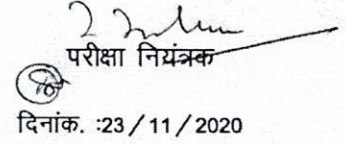 परीक्षा नियंत्रक
दिनांक. :23/11/2020